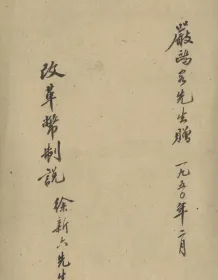 嚴鷗客先生贈 一九五〇年二月
改革幣制説 徐新六先生